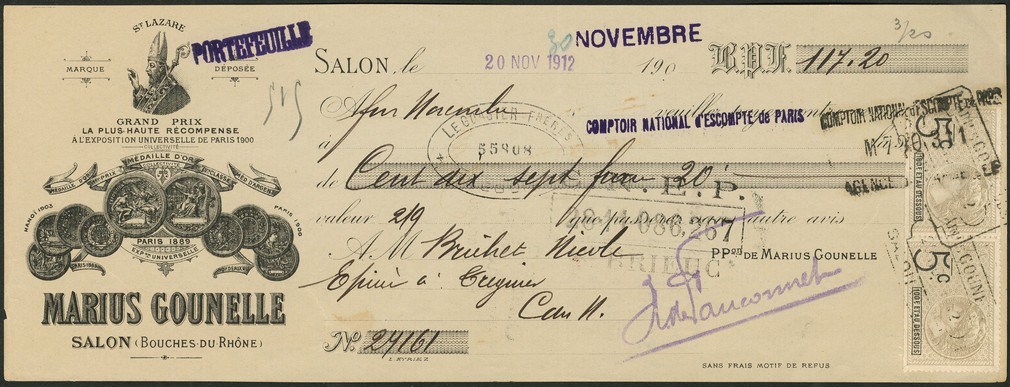 ST LAZARE
MARQUE DÉPOSÉE
GRAND PRIX
LA PLUS HAUTE RÉCOMPENSE
A L'EXPOSITION UNIVERSELLE DE PARIS 1900
COLLECTIVITÉ
MÉDAILLE D'OR
COLLECTIVITÉ
MÉDAILLE D'OR 1ER PRIX 1ÈRE CLASSE MÉD. D'ARGENT
HANOÏ 1903
PARIS 1900
PARIS 1889
EXPON UNIVERSELLE
MARIUS GOUNELLE
SALON (BOUCHES-DU-RHÔNE)
PORTEFEUILLE
515
SALON, le 20 NOV 1912 190
30 NOVEMBRE
B.P.F. 117.20
3/20
A fin Novembre veuillez payer contre
à COMPTOIR NATIONAL D'ESCOMPTE de PARIS
LECORSIER FRÈRES
55808
de Cent dix sept francs 20
valeur 2/9 que passerez sans autre avis
B.P.P.
086,267
BRIEUC
A M Bruhet Nicole
Epicier à
C. du N.
PPon DE MARIUS GOUNELLE
No. 24161
L. MYRIEZ
SANS FRAIS MOTIF DE REFUS
COMPTOIR NATIONAL D'ESCOMPTE de PARIS
AGENCE
SALON
5c
100F ET AU DESSOUS
5c
100F ET AU DESSOUS